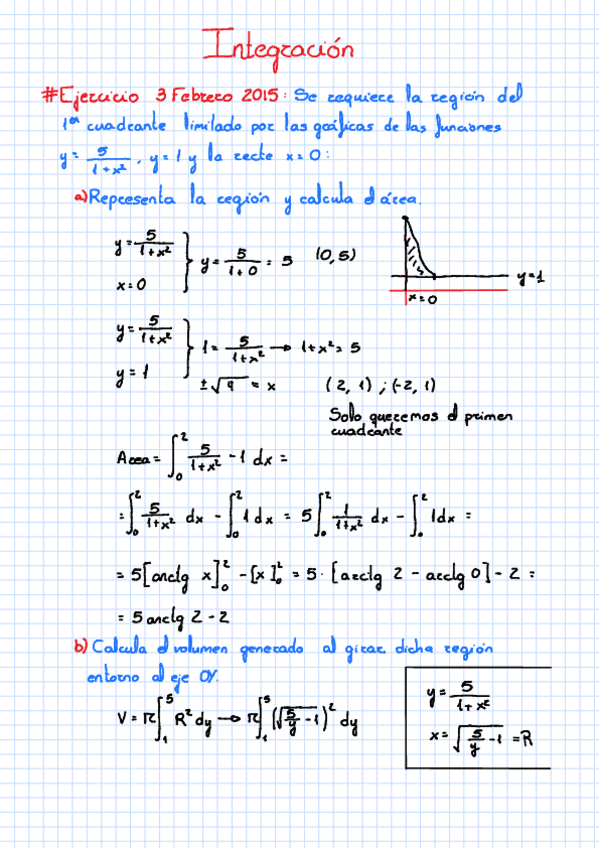 Integración
#Ejercicio 3 Febrero 2015: Se requiere la región del
1er cuadrante limitado por las gráficas de las funciones
y = 5/(1+x²), y=1 y la recte x=0:
a) Representa la región y calcula el área.
y = 5/(1+x²) } y = 5/(1+0) = 5 (0,5)
x=0
y=1
x=0
y = 5/(1+x²) } 1 = 5/(1+x²) → 1+x² = 5
y = 1 ±√4 = x (2, 1) ; (-2, 1)
Solo queremos el primen
cuadrante
Area = ∫₀² 5/(1+x²) - 1 dx =
= ∫₀² 5/(1+x²) dx - ∫₀² 1 dx = 5∫₀² 1/(1+x²) dx - ∫₀² 1dx =
= 5[arctg x]₀² - [x]₀² = 5·[arctg 2 - arctg 0] - 2 =
= 5 arctg 2 - 2
b) Calcula el volumen generado al girar dicha región
entorno al eje OY.
V = π∫₁⁵ R² dy → π∫₁⁵ (√(5/y - 1))² dy
y = 5/(1+x²)
x = √(5/y - 1) = R